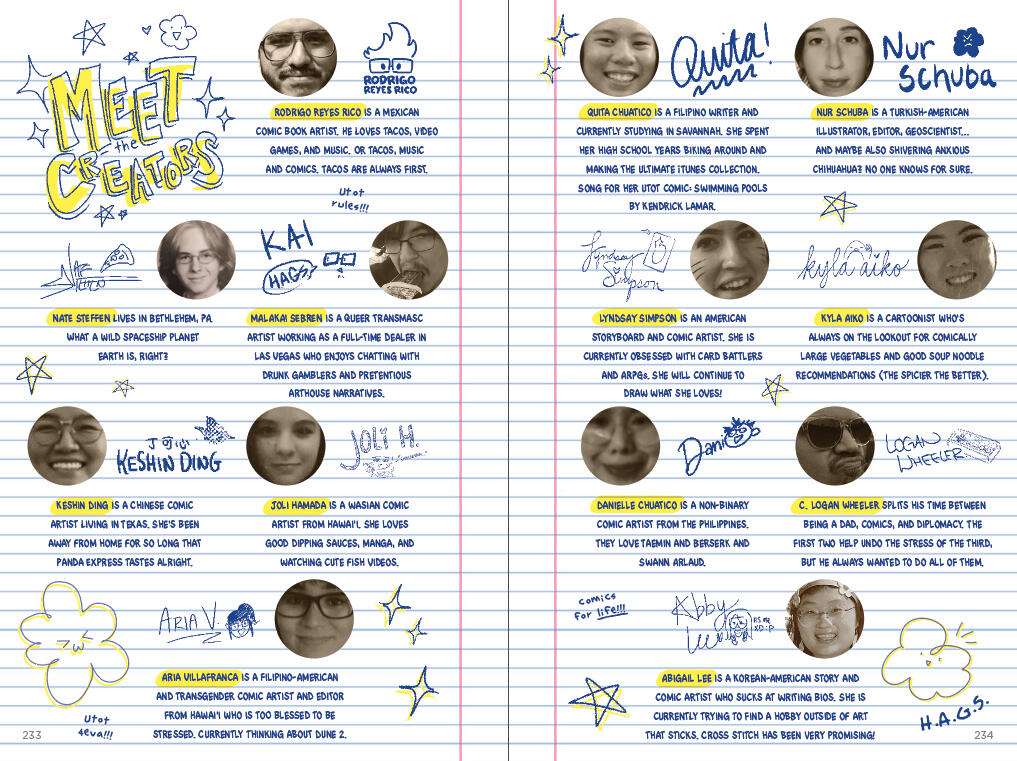 MEET
the
CREATORS
RODRIGO
REYES RICO
RODRIGO REYES RICO IS A MEXICAN
COMIC BOOK ARTIST. HE LOVES TACOS, VIDEO
GAMES, AND MUSIC. OR TACOS, MUSIC
AND COMICS. TACOS ARE ALWAYS FIRST.
Utot
rules!!!
NATE
STEFFEN
NATE STEFFEN LIVES IN BETHLEHEM, PA.
WHAT A WILD SPACESHIP PLANET
EARTH IS, RIGHT?
KAI
HAGS
MALAKAI SEBREN IS A QUEER TRANSMASC
ARTIST WORKING AS A FULL-TIME DEALER IN
LAS VEGAS WHO ENJOYS CHATTING WITH
DRUNK GAMBLERS AND PRETENTIOUS
ARTHOUSE NARRATIVES.
KESHIN DING
KESHIN DING IS A CHINESE COMIC
ARTIST LIVING IN TEXAS. SHE'S BEEN
AWAY FROM HOME FOR SO LONG THAT
PANDA EXPRESS TASTES ALRIGHT.
JOLI H.
JOLI HAMADA IS A WASIAN COMIC
ARTIST FROM HAWAI'I. SHE LOVES
GOOD DIPPING SAUCES, MANGA, AND
WATCHING CUTE FISH VIDEOS.
ARIA V.
ARIA VILLAFRANCA IS A FILIPINO-AMERICAN
AND TRANSGENDER COMIC ARTIST AND EDITOR
FROM HAWAI'I WHO IS TOO BLESSED TO BE
STRESSED. CURRENTLY THINKING ABOUT DUNE 2.
Utot
4eva!!!
233
Quita!
QUITA CHUATICO IS A FILIPINO WRITER AND
CURRENTLY STUDYING IN SAVANNAH. SHE SPENT
HER HIGH SCHOOL YEARS BIKING AROUND AND
MAKING THE ULTIMATE ITUNES COLLECTION.
SONG FOR HER UTOT COMIC: SWIMMING POOLS
BY KENDRICK LAMAR.
Nur
Schuba
NUR SCHUBA IS A TURKISH-AMERICAN
ILLUSTRATOR, EDITOR, GEOSCIENTIST...
AND MAYBE ALSO SHIVERING ANXIOUS
CHIHUAHUA? NO ONE KNOWS FOR SURE.
Lyndsay
Simpson
LYNDSAY SIMPSON IS AN AMERICAN
STORYBOARD AND COMIC ARTIST. SHE IS
CURRENTLY OBSESSED WITH CARD BATTLERS
AND ARPGs. SHE WILL CONTINUE TO
DRAW WHAT SHE LOVES!
kyla aiko
KYLA AIKO IS A CARTOONIST WHO'S
ALWAYS ON THE LOOKOUT FOR COMICALLY
LARGE VEGETABLES AND GOOD SOUP NOODLE
RECOMMENDATIONS (THE SPICIER THE BETTER).
Dani
DANIELLE CHUATICO IS A NON-BINARY
COMIC ARTIST FROM THE PHILIPPINES.
THEY LOVE TAEMIN AND BERSERK AND
SWANN ARLAUD.
LOGAN
WHEELER
C. LOGAN WHEELER SPLITS HIS TIME BETWEEN
BEING A DAD, COMICS, AND DIPLOMACY. THE
FIRST TWO HELP UNDO THE STRESS OF THE THIRD,
BUT HE ALWAYS WANTED TO DO ALL OF THEM.
comics
for life!!!
Abby
Lee
ABIGAIL LEE IS A KOREAN-AMERICAN STORY AND
COMIC ARTIST WHO SUCKS AT WRITING BIOS. SHE IS
CURRENTLY TRYING TO FIND A HOBBY OUTSIDE OF ART
THAT STICKS. CROSS STITCH HAS BEEN VERY PROMISING!
H.A.G.S.
234